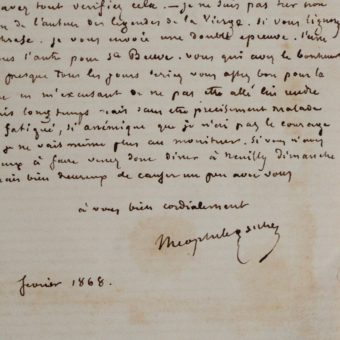 avez tout verifier cela. — je ne suis pas trop
de l'auteur des legendes de la Vierge. si vous
phrase. je vous envoie une double epreuve. l'une
l'autre pour Ste Beuve. vous qui avez le bonheur
presque tous les jours soyez assez bon pour
en m'excusant de ne pas etre allé lui rendre
longtemps mais sans etre precisement malade
fatigué, si anémique que je n'ai pas le courage
je ne vais meme plus au moniteur. si vous n'avez
à faire venez donc diner à Neuilly dimanche
bien heureux de causer un peu avec vous
à vous bien cordialement
Theophile Gautier
fevrier 1868.